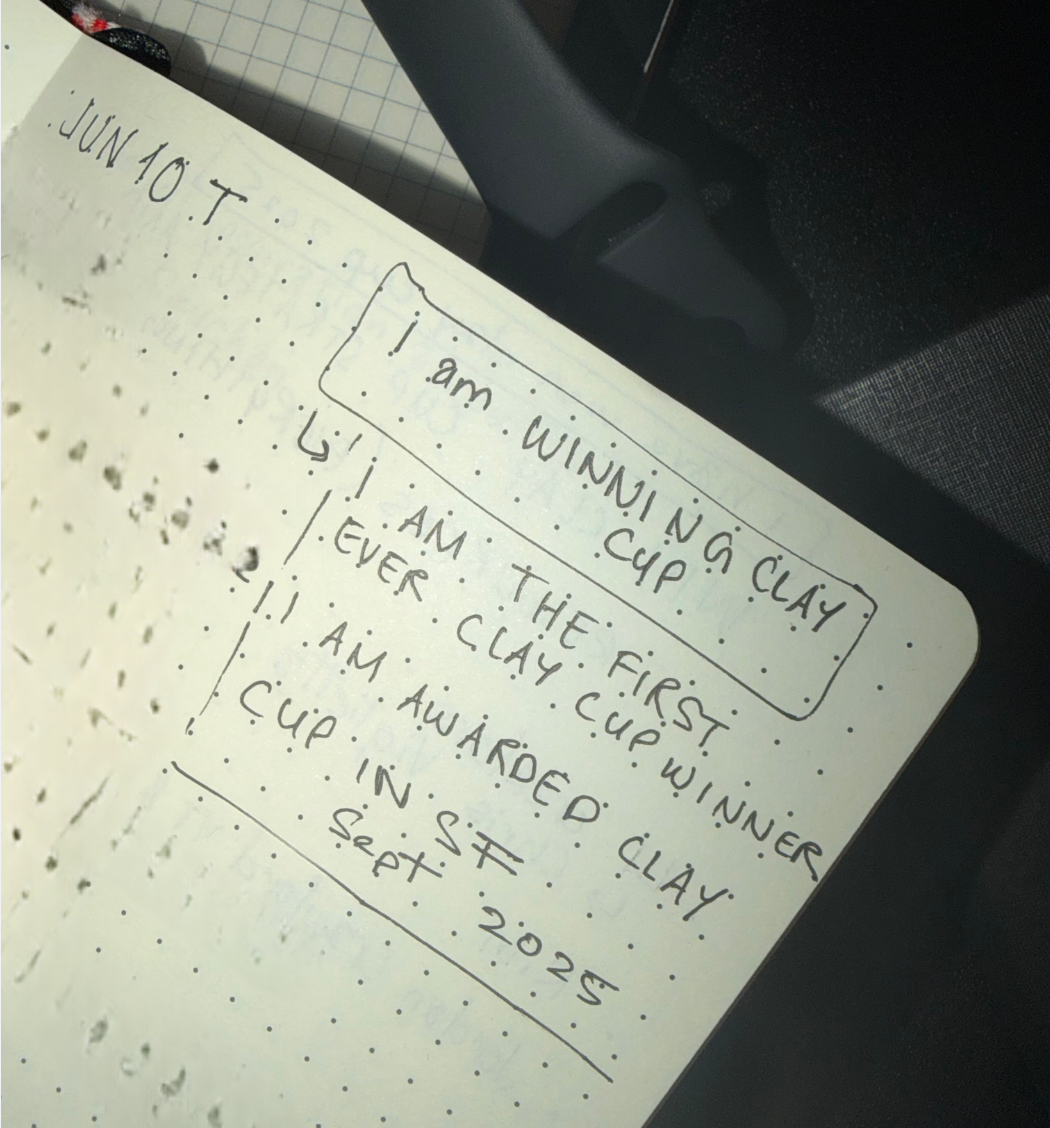 JUN 10 T
I am WINNING CLAY
CUP
I AM THE FIRST
EVER CLAY CUP WINNER
I AM AWARDED CLAY
CUP IN SF
Sept 2025